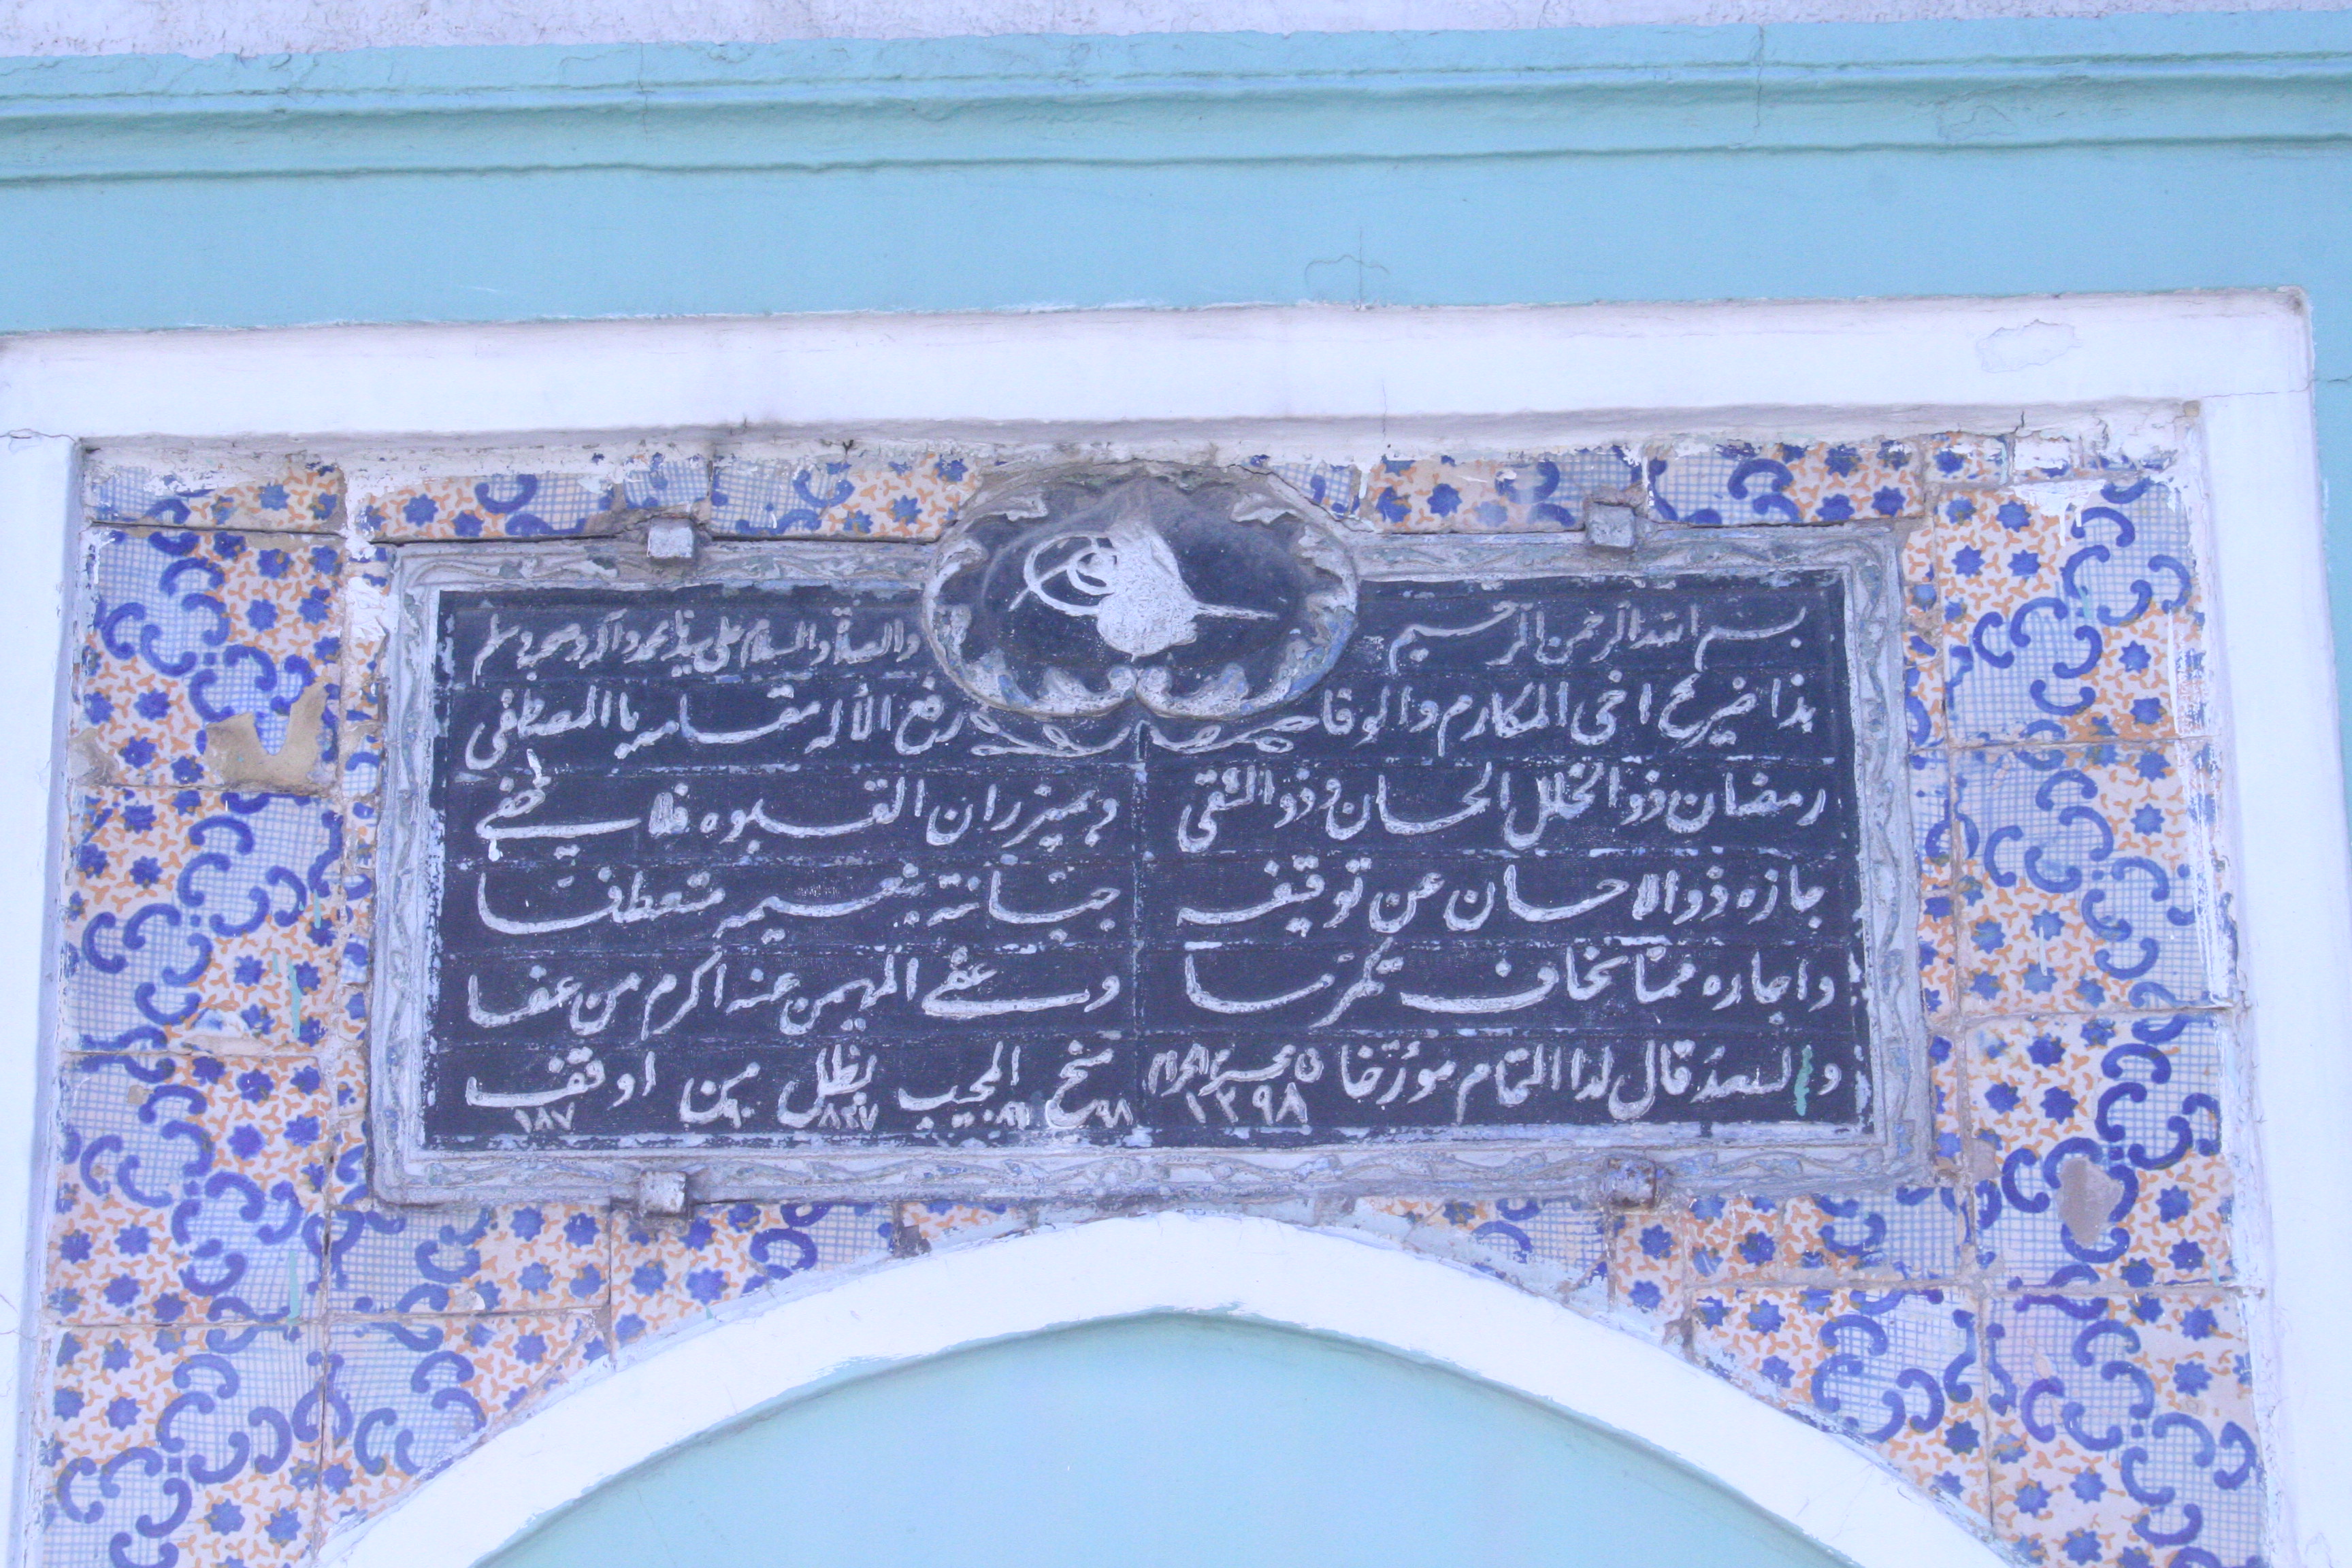 بسم الله الرحمن الرحيم والصلاة والسلام على سيدنا محمد وآله وصحبه وسلم
هذا ضريح اخى المكارم والوفا رفع الاله مقامه يا المصطفى
رمضان ذو الخلل الحسان وذو التقى وبميزران القبوه فلا
جازه ذو الاحسان عن توقيفه جبانته بنعيمه متعطفا
واجاره مما تخاف تكرما وعفى المهيمن عنه اكرم من عفا
والسعد قال لذا التمام مؤرخا ١٥ محرم الحرام ١٢٩٨ منح المجيب بظل من اوقفا
١٢٩٨ ٩٨ ٨٦ ٩٠ ١٨٧